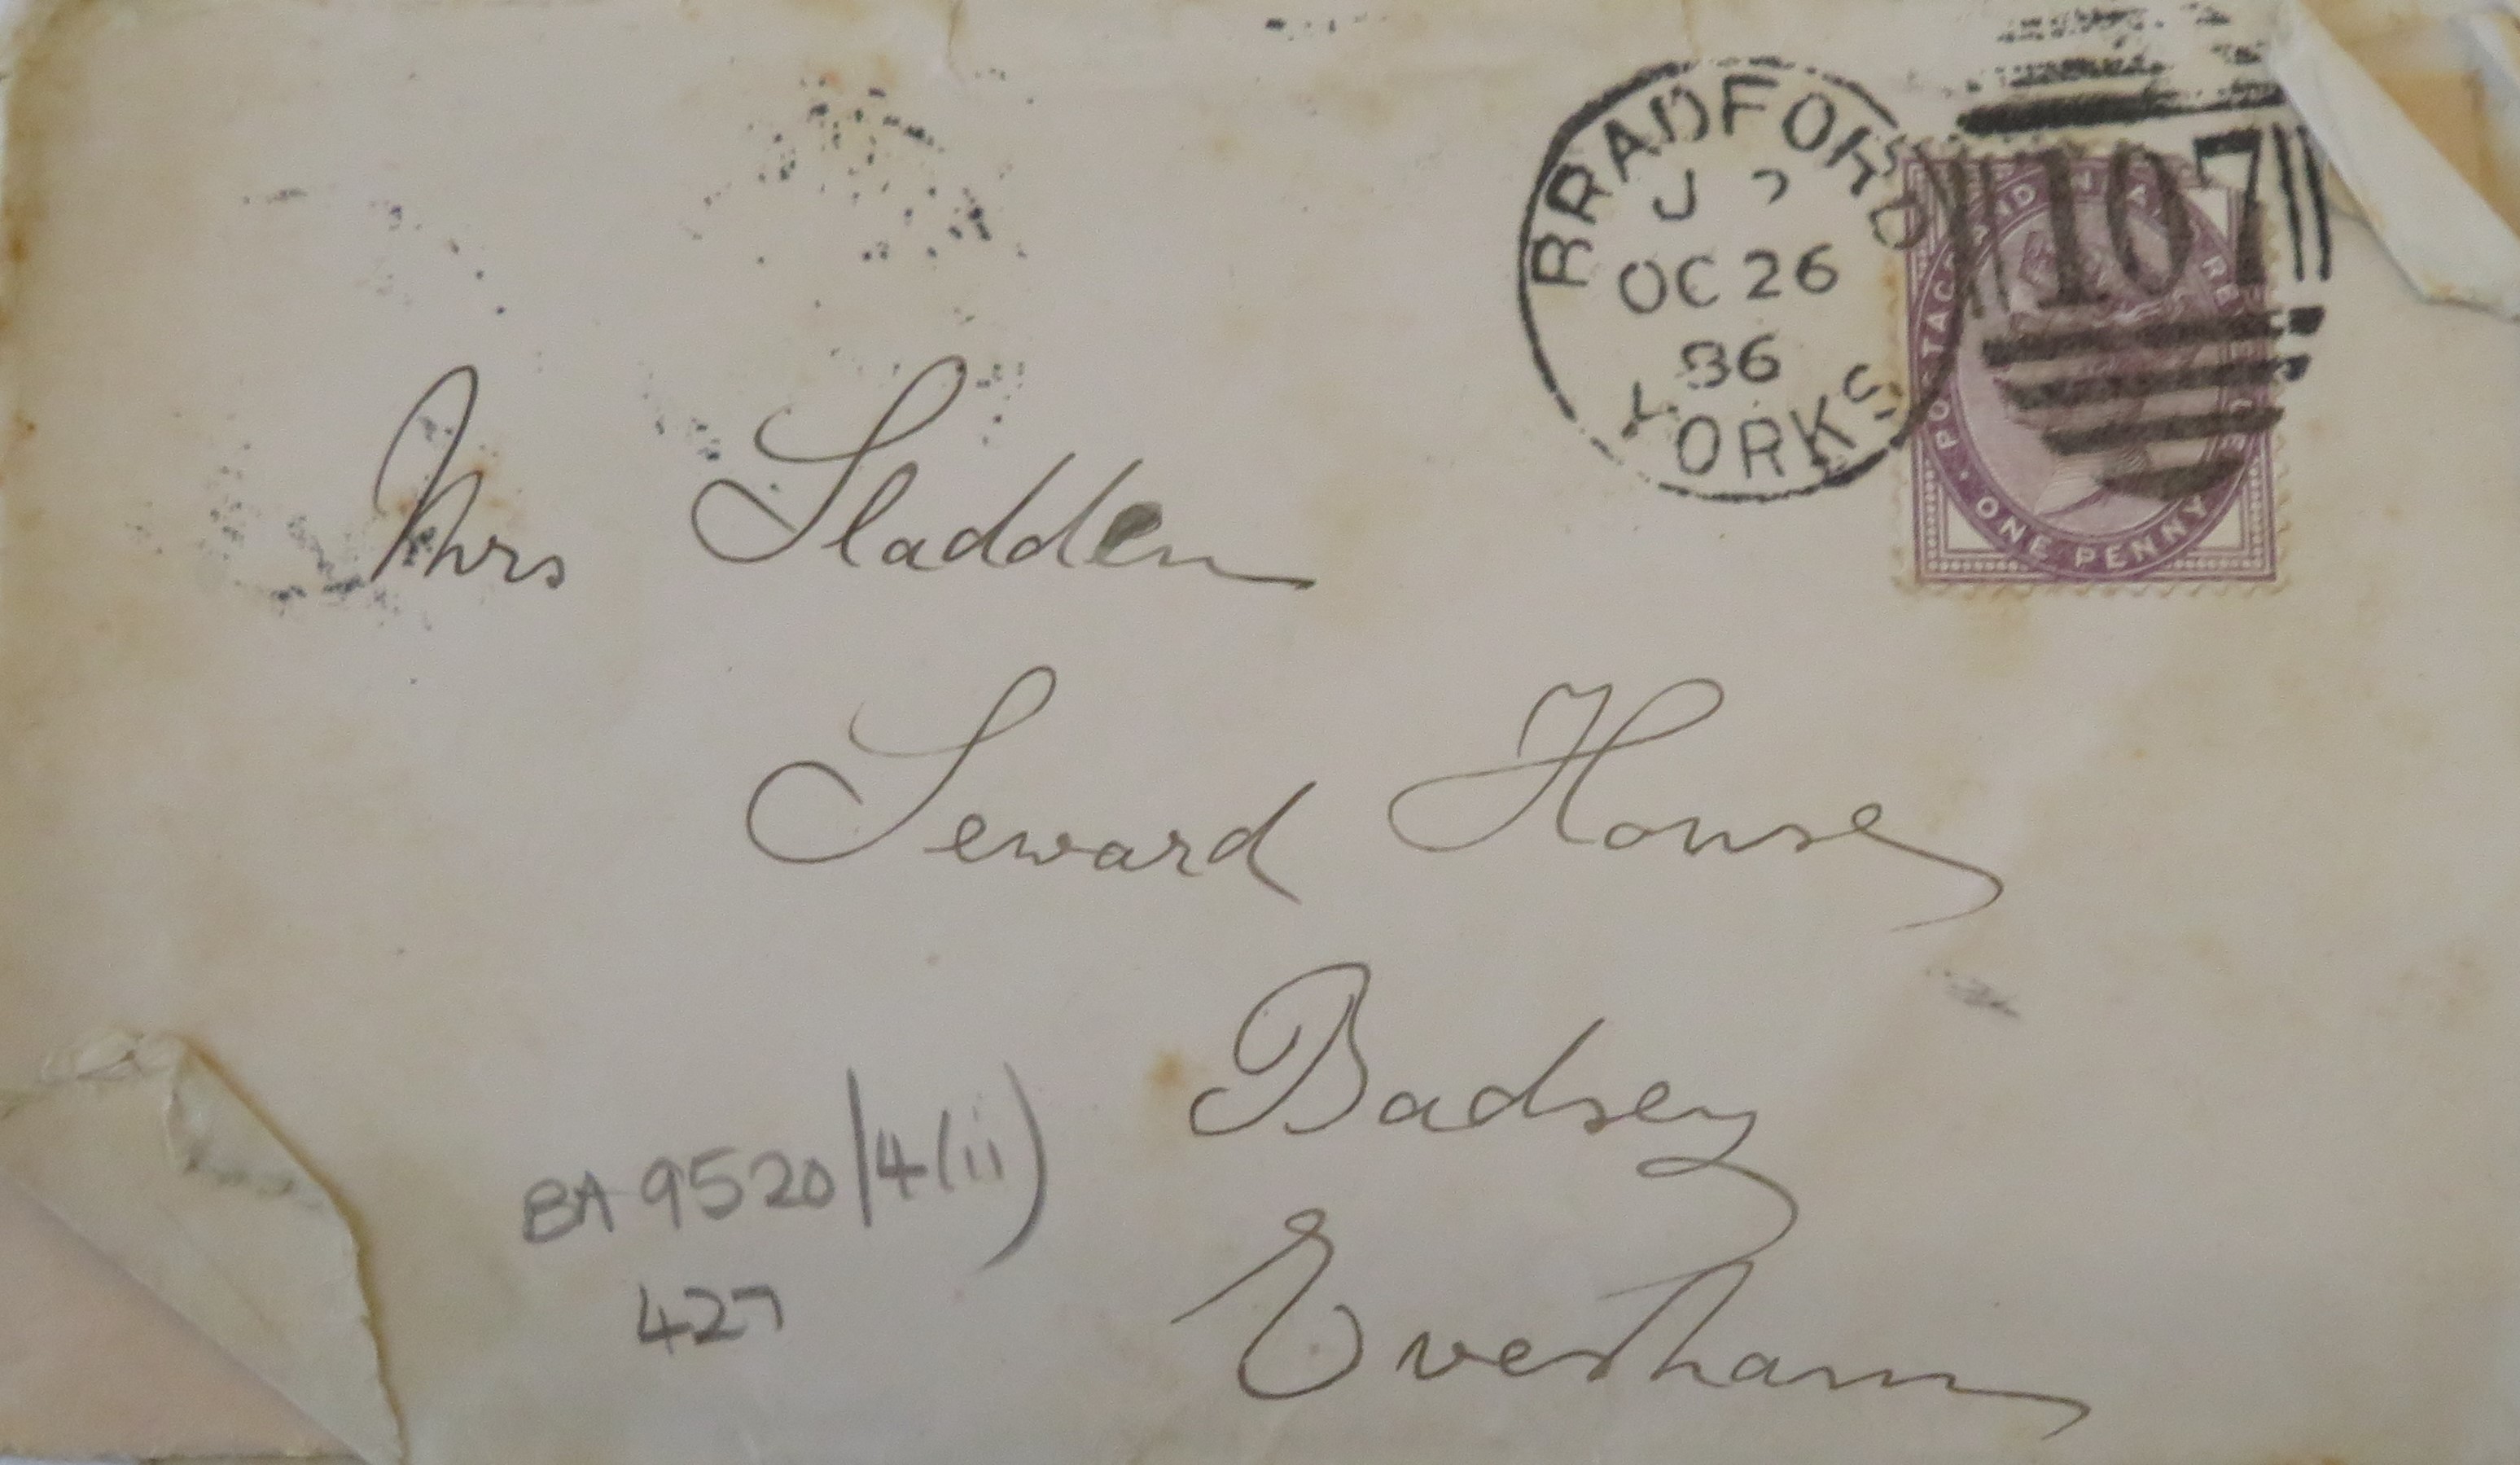 BRADFORD
J
OC 26
86
YORKS
107
POSTAGE AND INLAND REVENUE
ONE PENNY
Mrs Sladden
Seward House
Badsey
Evesham
BA 9520/4(ii)
427